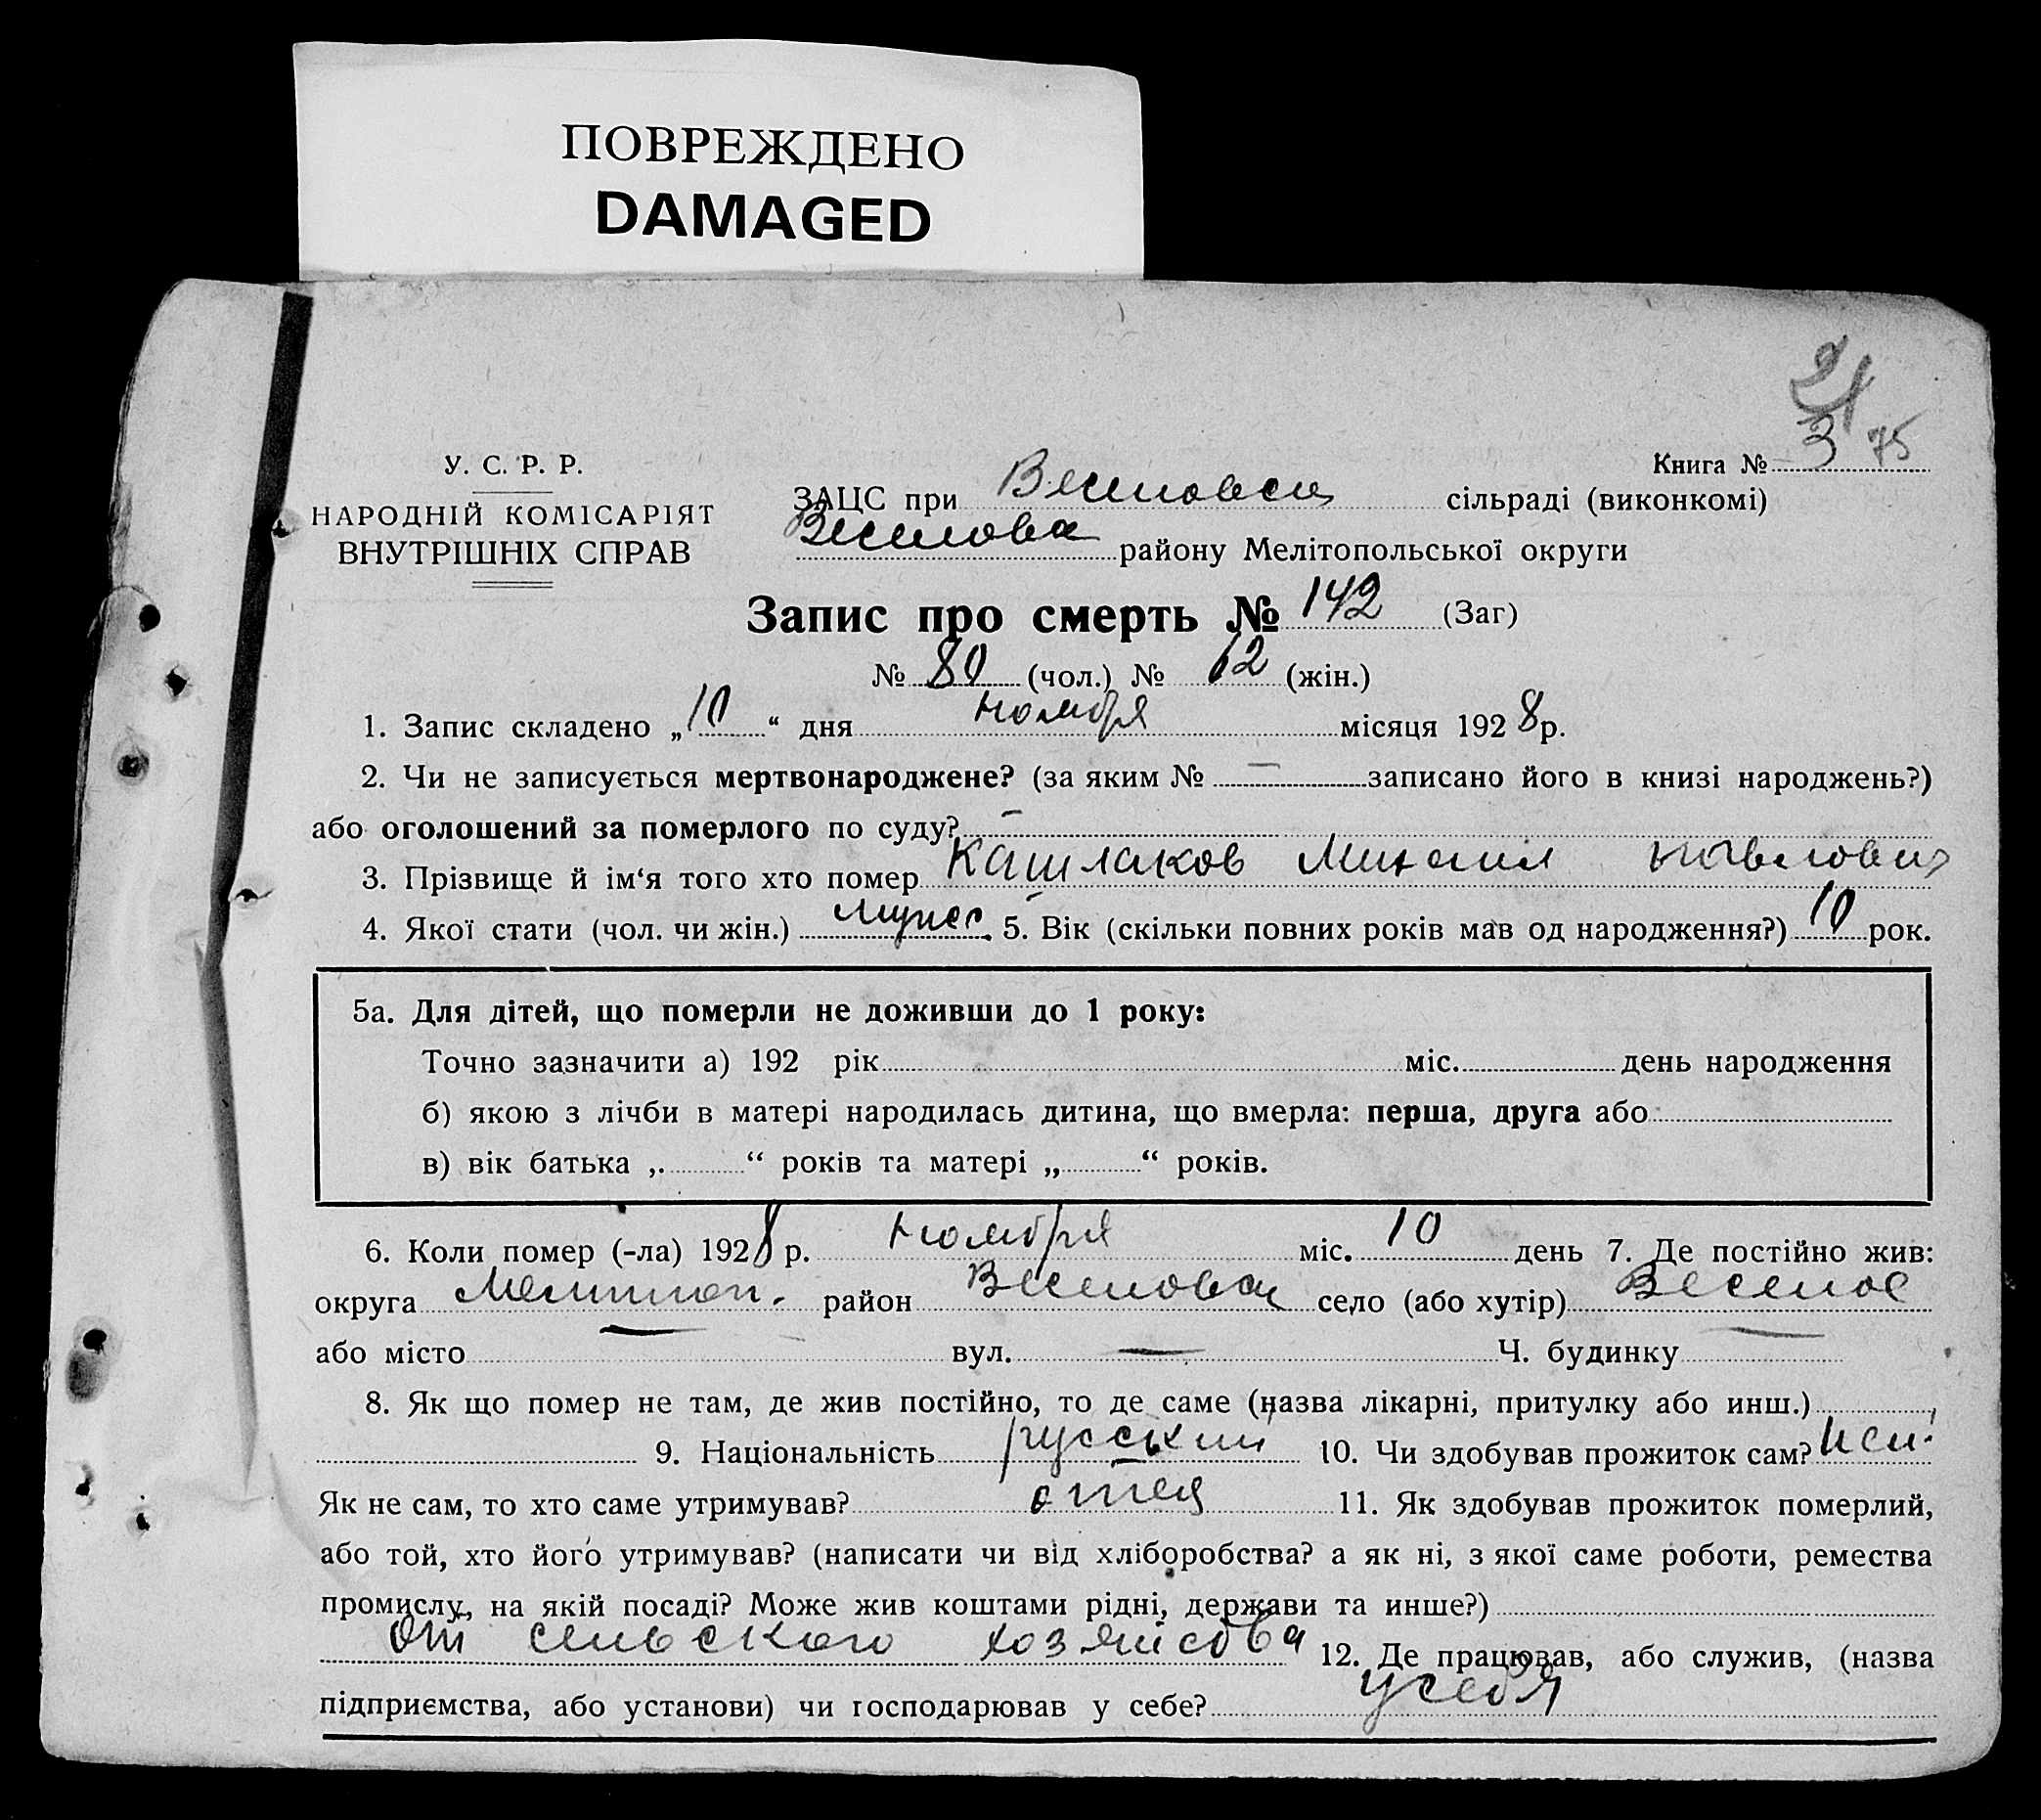 ПОВРЕЖДЕНО
DAMAGED
21
Книга № 3 75
У. С. Р. Р.
НАРОДНІЙ КОМІСАРІЯТ
ВНУТРІШНІХ СПРАВ
ЗАЦС при Веселовск сільраді (виконкомі)
Веселовск району Мелітопольської округи
Запис про смерть № 142 (Заг)
№ 80 (чол.) № 62 (жін.)
1. Запис складено „10“ дня ноября місяця 1928 р.
2. Чи не записується мертвонароджене? (за яким № — записано його в книзі народжень?)
або оголошений за померлого по суду? —
3. Прізвище й ім‘я того хто помер Кашлаков Михаил Павлович
4. Якої стати (чол. чи жін.) мужск. 5. Вік (скільки повних років мав од народження?) 10 рок.
5а. Для дітей, що померли не доживши до 1 року:
Точно зазначити а) 192 рік міс. день народження
б) якою з лічби в матері народилась дитина, що вмерла: перша, друга або
в) вік батька „ “ років та матері „ “ років.
6. Коли помер (-ла) 1928 р. ноября міс. 10 день 7. Де постійно жив:
округа Мелитоп. район Веселовск село (або хутір) Веселое
або місто — вул. — Ч. будинку —
8. Як що помер не там, де жив постійно, то де саме (назва лікарні, притулку або инш.)
9. Національність русский 10. Чи здобував прожиток сам?
Як не сам, то хто саме утримував? отец 11. Як здобував прожиток померлий,
або той, хто його утримував? (написати чи від хліборобства? а як ні, з якої саме роботи, ремества
промислу, на якій посаді? Може жив коштами рідні, держави та инше?)
От сельского хозяйства 12. Де працював, або служив, (назва
підприємства, або установи) чи господарював у себе? у себя